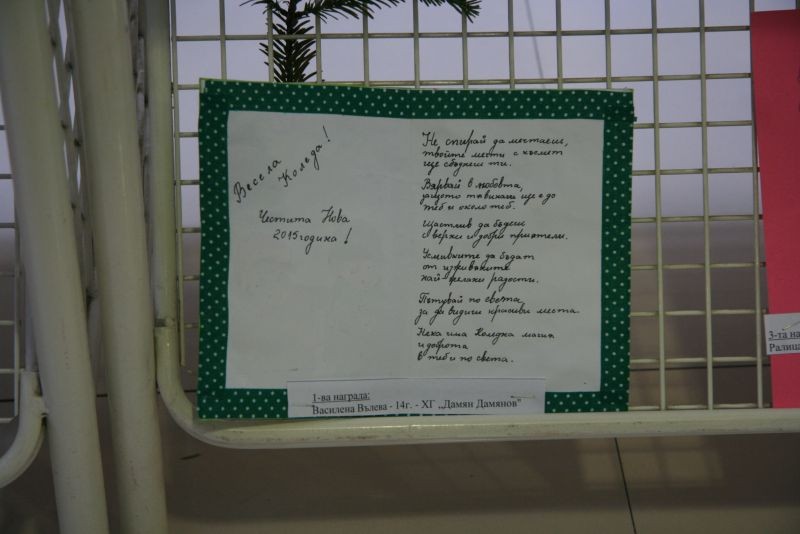 Весела
Коледа!
Честита Нова
2015 година!
Не спирай да мечтаеш,
твойте мечти с късмет
ще сбъднеш ти.
Вярвай в любовта,
защото тя винаги ще е до
теб и около теб.
Щастлив да бъдеш
с верни и добри приятели.
Усмивките да бъдат
от
най-желани радости.
Пътувай по света,
за да видиш красиви места.
Нека има Коледна магия
и доброта
в теб и по света.
1-ва награда:
Василена Вълева - 14г. - ХГ „Дамян Дамянов"
3-та на
Ралица